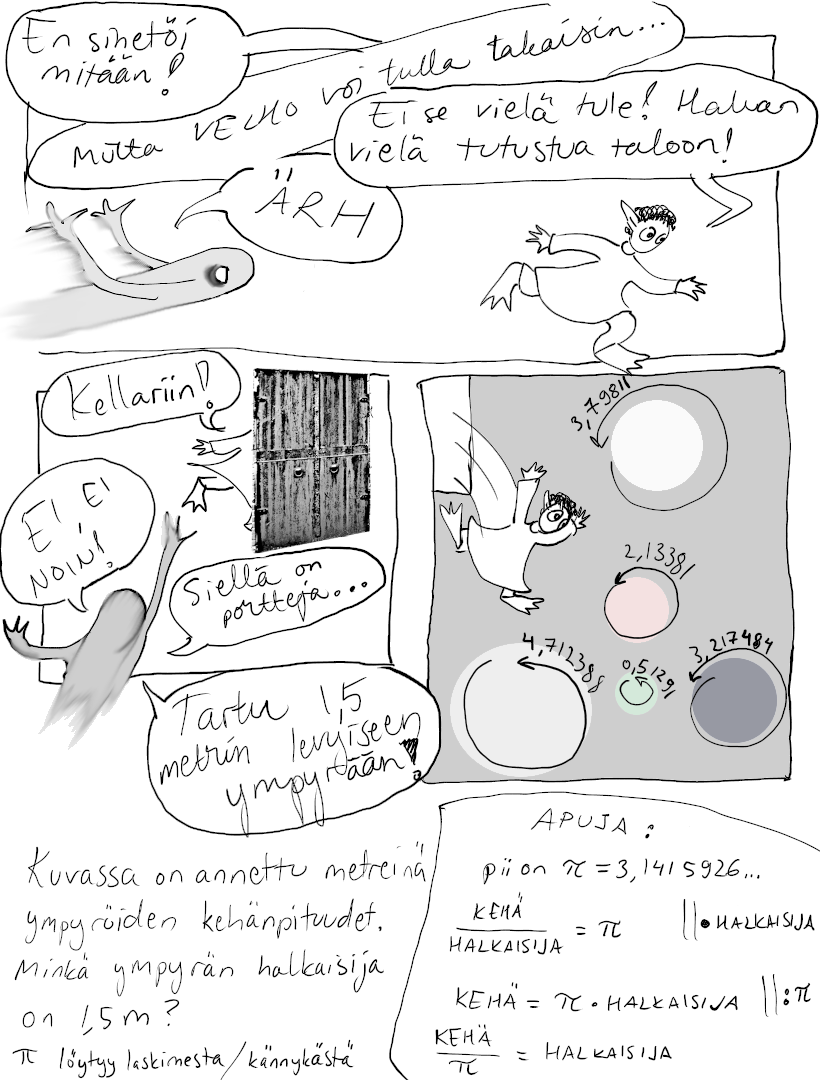 En sihetöi
mitään!
Mutta VELHO voi tulla takaisin...
Ei se vielä tule! Haluan
vielä tutustua taloon!
ÄRH
Kellariin!
EI, EI
NOIN!
Siellä on
portteja...
Tartu 1,5
metrin levyiseen
ympyrään!
3,79811
2,13381
4,712388
0,51291
3,217484
Kuvassa on annettu metreinä
ympyröiden kehänpituudet.
Minkä ympyrän halkaisija
on 1,5 m?
π löytyy laskimesta/kännykästä
APUJA:
pii on π = 3,1415926...
KEHÄ
HALKAISIJA = π ||• HALKAISIJA
KEHÄ = π • HALKAISIJA ||:π
KEHÄ
π = HALKAISIJA